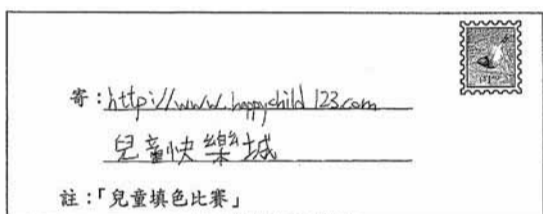 寄：http://www.happychild123.com
兒童快樂城
註：「兒童填色比賽」